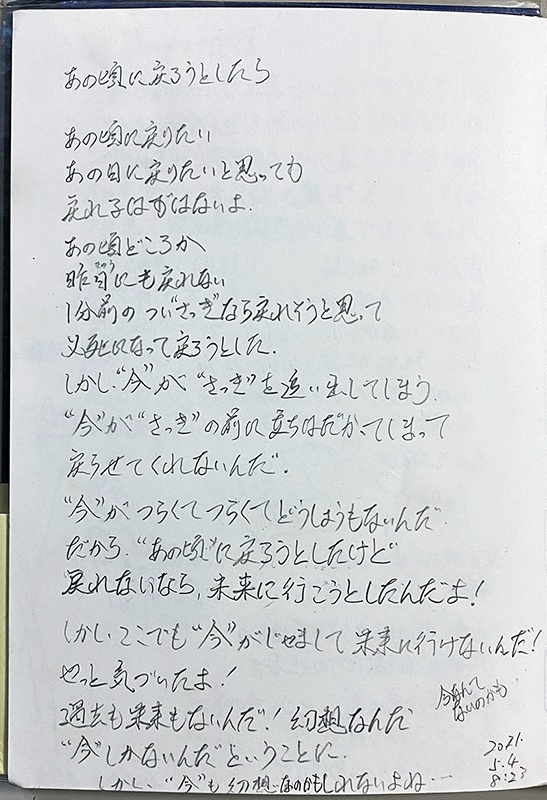 あの頃に戻ろうとしたら
あの頃に戻りたい
あの日に戻りたいと思っても
戻れ子はずはないよ.
あの頃どころか
昨日にも戻れない
きのう
1分前のつい"さっき"なら戻れそうと思って
必死になって戻ろうとした.
しかし"今"が"さっき"を追い出してしまう
"今"が"さっき"の前に立ちはだかってしまって
戻らせてくれないんだ.
"今"がつらくてつらくてどうしようもないんだ
だから."あの頃"に戻ろうとしたけど
戻れないなら,未来に行こうとしたんだよ!
しかしここでも"今"がじゃまして未来に行けないんだ!
やっと気づいたよ!
過去も未来もないんだ!幻想なんだ
"今"しかないんだということに.
しかし,"今"も幻想なのかもしれないよね…
今なんて
ないのかも…
2021.
5.4
8:23